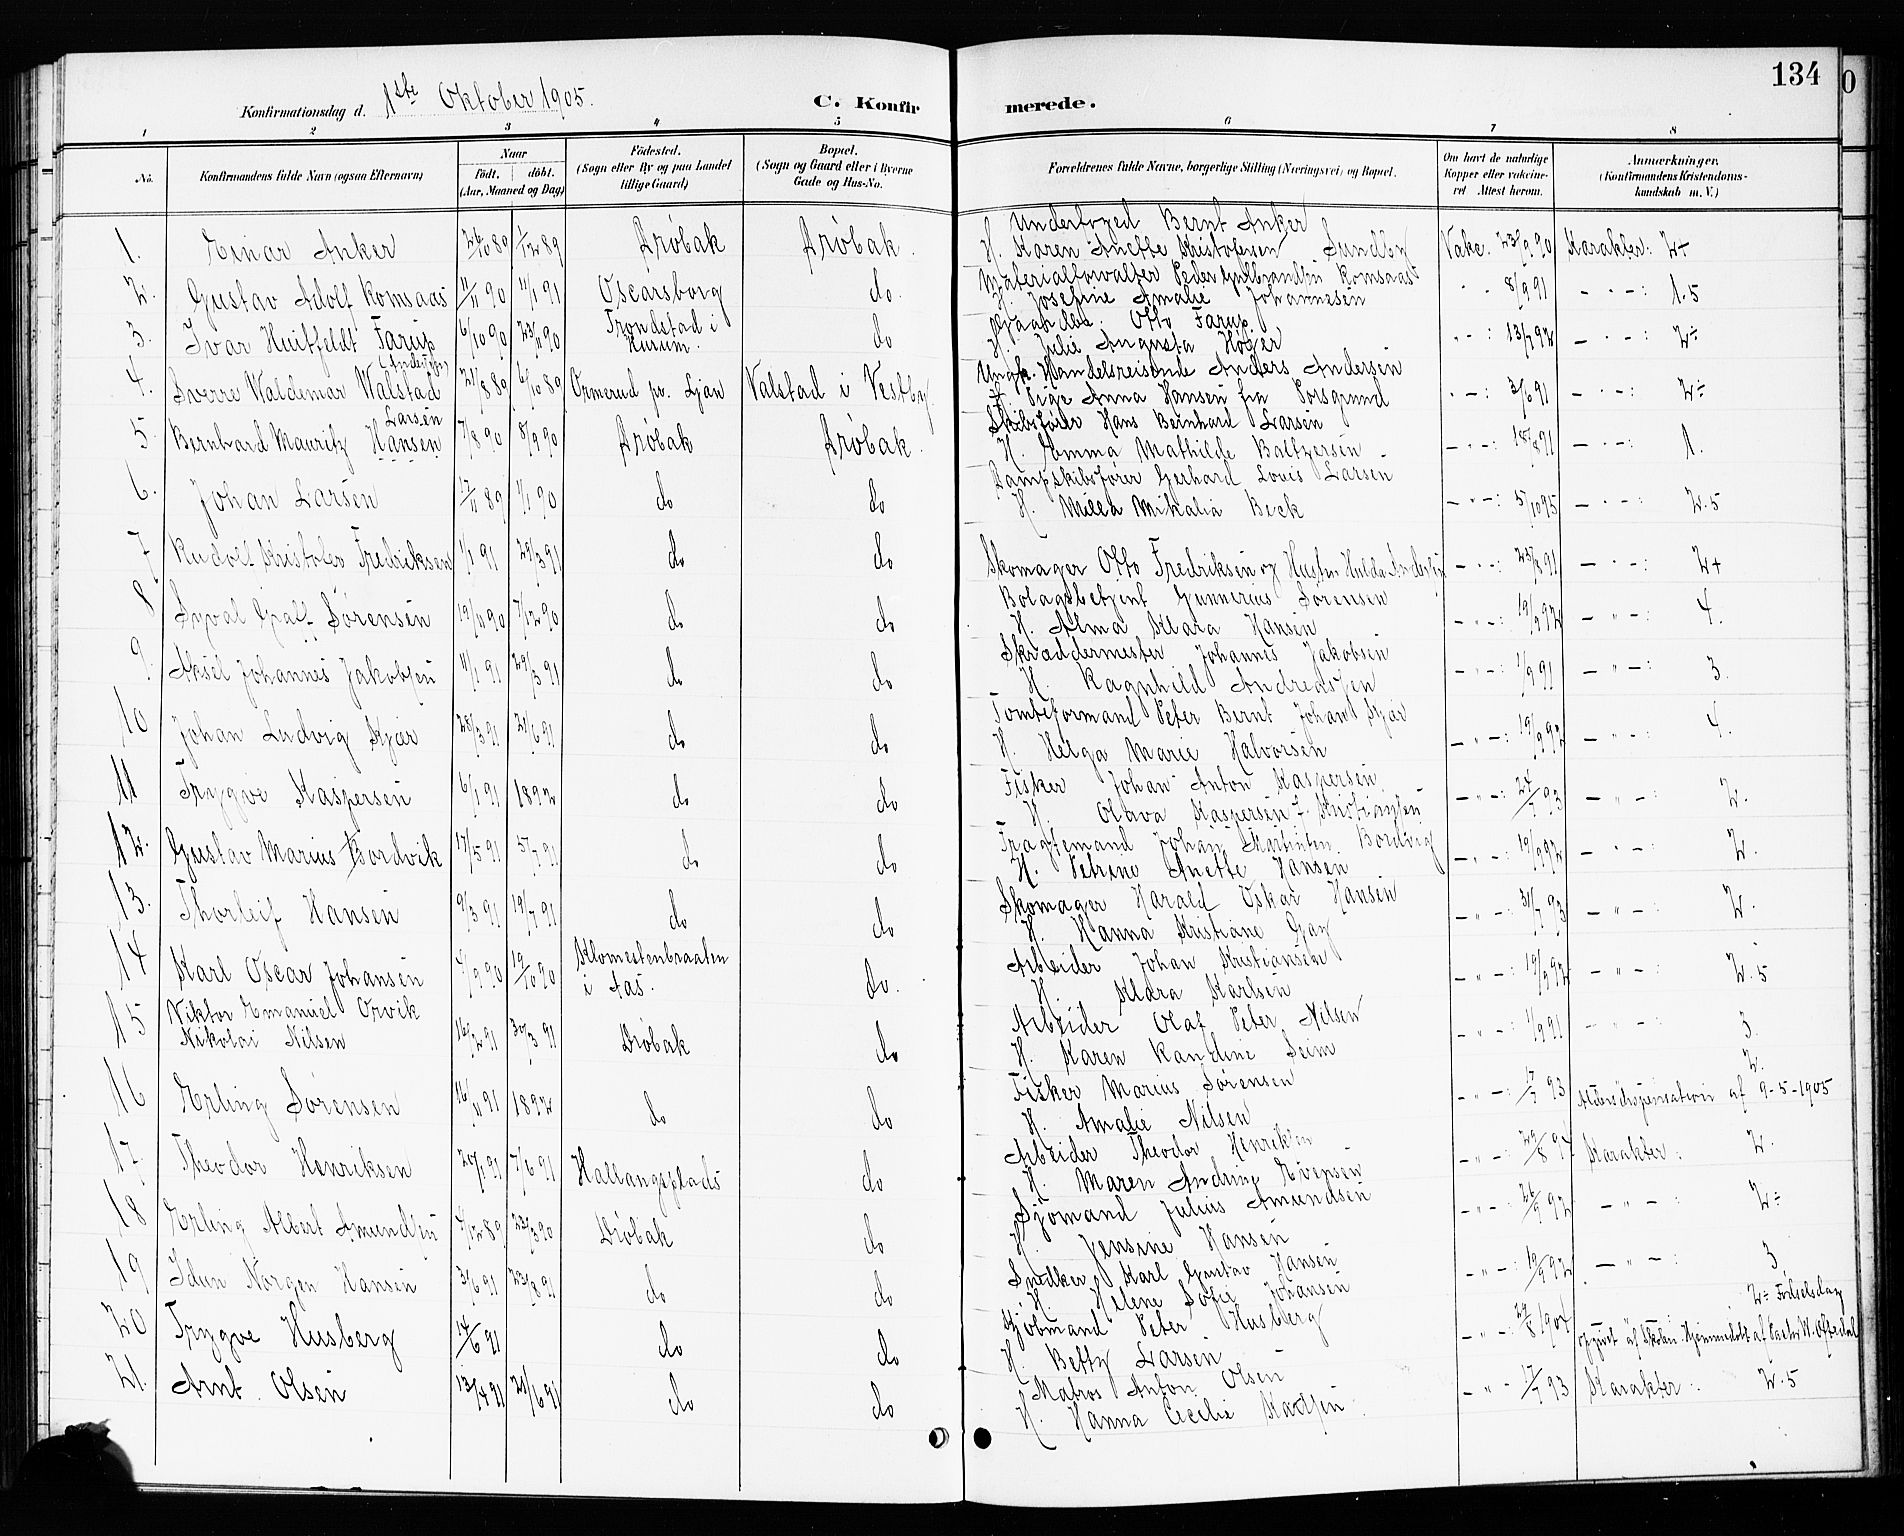 134
Konfirmationsdag d. 1ste Oktober 1905.
C. Konfirmerede.
1 2 3 4 5 6 7 8
No. | Konfirmandens fulde Navn (ogsaa Efternavn) | Naar Födt. döbt. (Aar, Maaned og Dag) | Födested. (Sogn eller By og paa Landet tillige Gaard) | Bopæl. (Sogn og Gaard eller i Byerne Gade og Hus-No. | Forældrenes fulde Navne, borgerlige Stilling (Næringsvei) og Bopæl. | Om havt de naturlige Kopper eller vakcineret Attest herom. | Anmærkninger. (Konfirmandens Kristendomskundskab m. V.)
1. Einar Anker | 26/10 89 | 1/12 89 | Drøbak | Drøbak. | Underfoged Bernt Anker H. Karen Anette Kristofersen Sundby | Vakc. 23/9 90 | Karakter: 2+
2. Gustav Adolf Komsaas | 11/11 90 | 11/1 91 | Oscarsborg | do. | Materialforvalter Peder Gulbrandsen Komsaas H. Josefine Amalie Johannesen | " - : 8/9 91 | - " - : 1.5
3. Ivar Huitfeldt Farup | 6/10 90 | 23/11 90 | Trondstad i Hurum. | do | Otto Farup. H. Julie Augusta Høyer | " - : 13/9 92 | - " - : 2÷
4. Sverre Waldemar Walstad (Andersen) | 21/8 89 | 6/10 89 | Ormerud pr. Ljan | Valstad i Vestby | Ungk. Handelsreisende Anders Andersen & Pige Anna Hansen fra Porsgrund | " - : 3/6 91 | - " - : 2÷
5. Bernhard Mauritz Hansen Larsen | 7/8 90 | 8/9 90 | Drøbak | Drøbak. | Skibsfører Hans Bernhard Larsen H. Emma Mathilde Baltzersen | - " - : 18/8 91 | - " - : 1.
6. Johan Larsen | 17/11 89 | 1/1 90 | do | do | Dampskibsfører Gerhard Lovis Larsen H. Milla Mikalia Beck | - " - : 5/10 95 | - " - : 2.5
7 Rudolf Kristofer Fredriksen | 1/1 91 | 29/3 91 | do | do | Skomager Otto Fredriksen og Hustru Hulda | - " - : 23/8 91 | - " - : 2+
8 Syval Graff Sørensen | 19/11 90 | 7/12 90 | do | do | Bolagsbetjent Gunnerius Sørensen H. Alma Klara Hansen | - " - : 19/9 92 | - " - : 4.
9. Aksel Johannes Jakobsen | 11/1 91 | 29/3 91 | do | do | Skræddermester Johannes Jakobsen H. Ragnhild Andreassen | - " - : 1/9 91 | - " - : 3.
10 Johan Ludvig Kjær | 28/3 91 | 21/6 91 | do | do | Tomteformand Peter Bernt Johan Kjær H. Helga Marie Halvorsen | - " - : 19/9 92 | - " - : 4.
11 Trygve Kaspersen | 6/1 91 | 1892 | do | do | Fisker Johan Anton Kaspersen H. Olava Kaspersen f. Kristiansen | - " - : 24/7 93 | - " - : 2.
12. Gustav Marius Bordvik | 17/5 91 | 5/7 91 | do | do | Fragtemand Johan Martinsen Bordvig H. Petrine Anette Hansen | - " - : 19/9 92 | - " - : 2.
13. Thorleif Hansen | 9/3 91 | 19/7 91 | do | do | Skomager Harald Oskar Hansen H. Hanna Kristiane Gay | - " - : 31/7 93 | - " - : 2.
14 Karl Oscar Johansen | 4/9 90 | 19/10 90 | Klomestenbraaten i Aas. | do. | Arbeider Johan Kristiansen H. Klara Karlsen | - " - : 19/9 92 | - " - : 2.5
15 Viktor Emanuel Orvik Nikolai Nilsen | 16/2 91 | 30/3 91 | Drøbak | do | Arbeider Olaf Peter Nilsen H. Karen Randine Seim | - " - : 1/9 91 | - " - : 3.
16 Erling Sørensen | 16/11 91 | 1892 | do | do | Fisker Marius Sørensen H. Amalie Nilsen | - " - : 17/7 93 | 2. Aldersdispensation af 9-5-1905
17. Theodor Henriksen | 20/1 91 | 7/6 91 | Hallangsplads | do | Arbeider Theodor Henriksen H. Maren Andrine Evensen | - " - : 29/8 94 | Karakter: 2.
18 Erling Albert Amundsen | 4/12 89 | 23/3 90 | Drøbak | do | Sjømand Julius Amundsen H. Jensine Hansen | - " - : 26/9 92 | - " - : 2÷
19 Idun Norgen Hansen | 3/6 91 | 23/8 91 | do | do | Snedker Karl Gustav Hansen H. Helene Sofie Johansen | - " - : 19/9 92 | - " - : 3
20 Trygve Husberg | 14/6 91 | do | do | Kjøbmand Peter Husberg H. Betty Larsen | - " - : 29/8 1904 | 2÷ Fødselsdag opgivet af Skolen. Hjemmedøbt af Pastor W. Oftedal
21. Arnt Olsen | 13/4 91 | 21/6 91 | do | do | Matros Anton Olsen H. Hanna Cecilie Madsen | - " - 17/7 93 | Karakter: 2.5